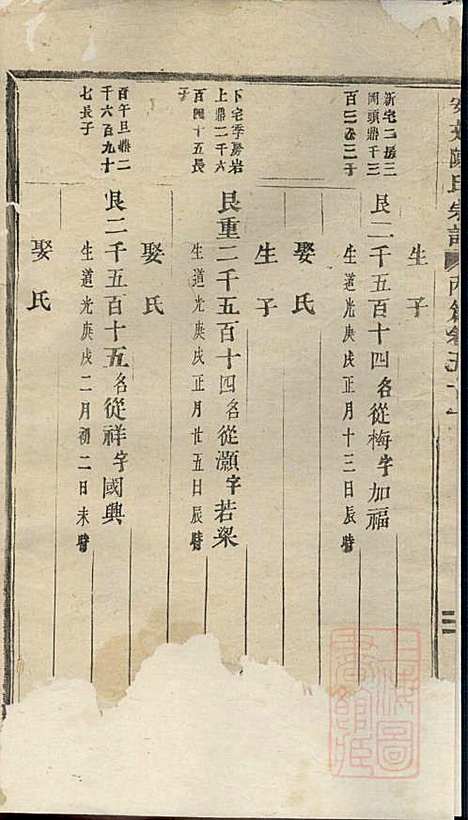 陳氏宗譜 內篇卷五十一
三
生子
新宅二房三
岡頭鼎千三
百三卷三子
艮二千五百十四名從梅字加福
生道光庚戌正月十三日辰時
娶氏
生子
下宅季房岩
上鼎二千六
百四十五長
子
艮重二千五百十四名從灝字若梁
生道光庚戌正月廿五日辰時
娶氏
百午旦鼎二
千六百九十
七長子
艮二千五百十五名從祥字國興
生道光庚戌二月初二日未時
娶氏